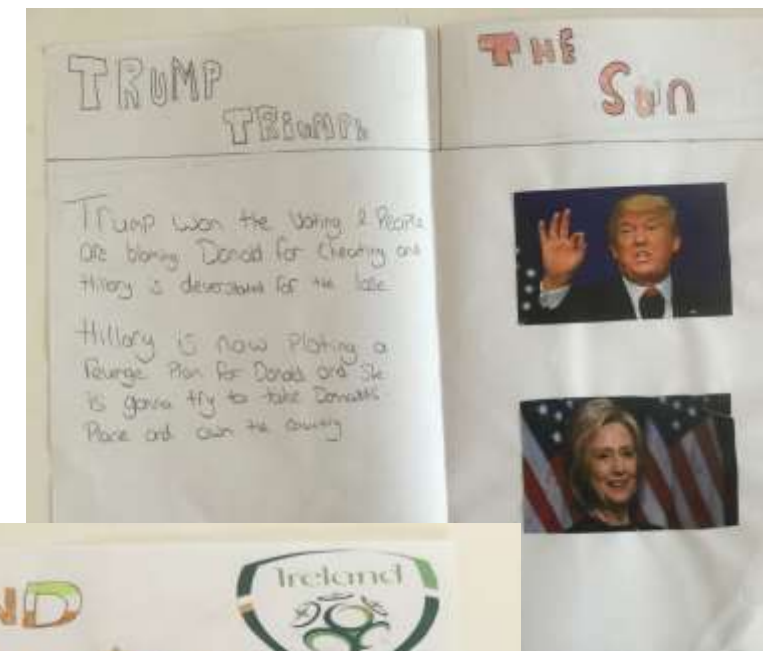 TRUMP
TRIUMPh
THE
Sun
Trump won the Voting & People
are blaming Donald for Cheating and
Hillary is for the lose
Hillary is now Ploting a
Revenge Plan for Donald and She
is gonna try to take Donalds
Place and own the country
ND
Ireland